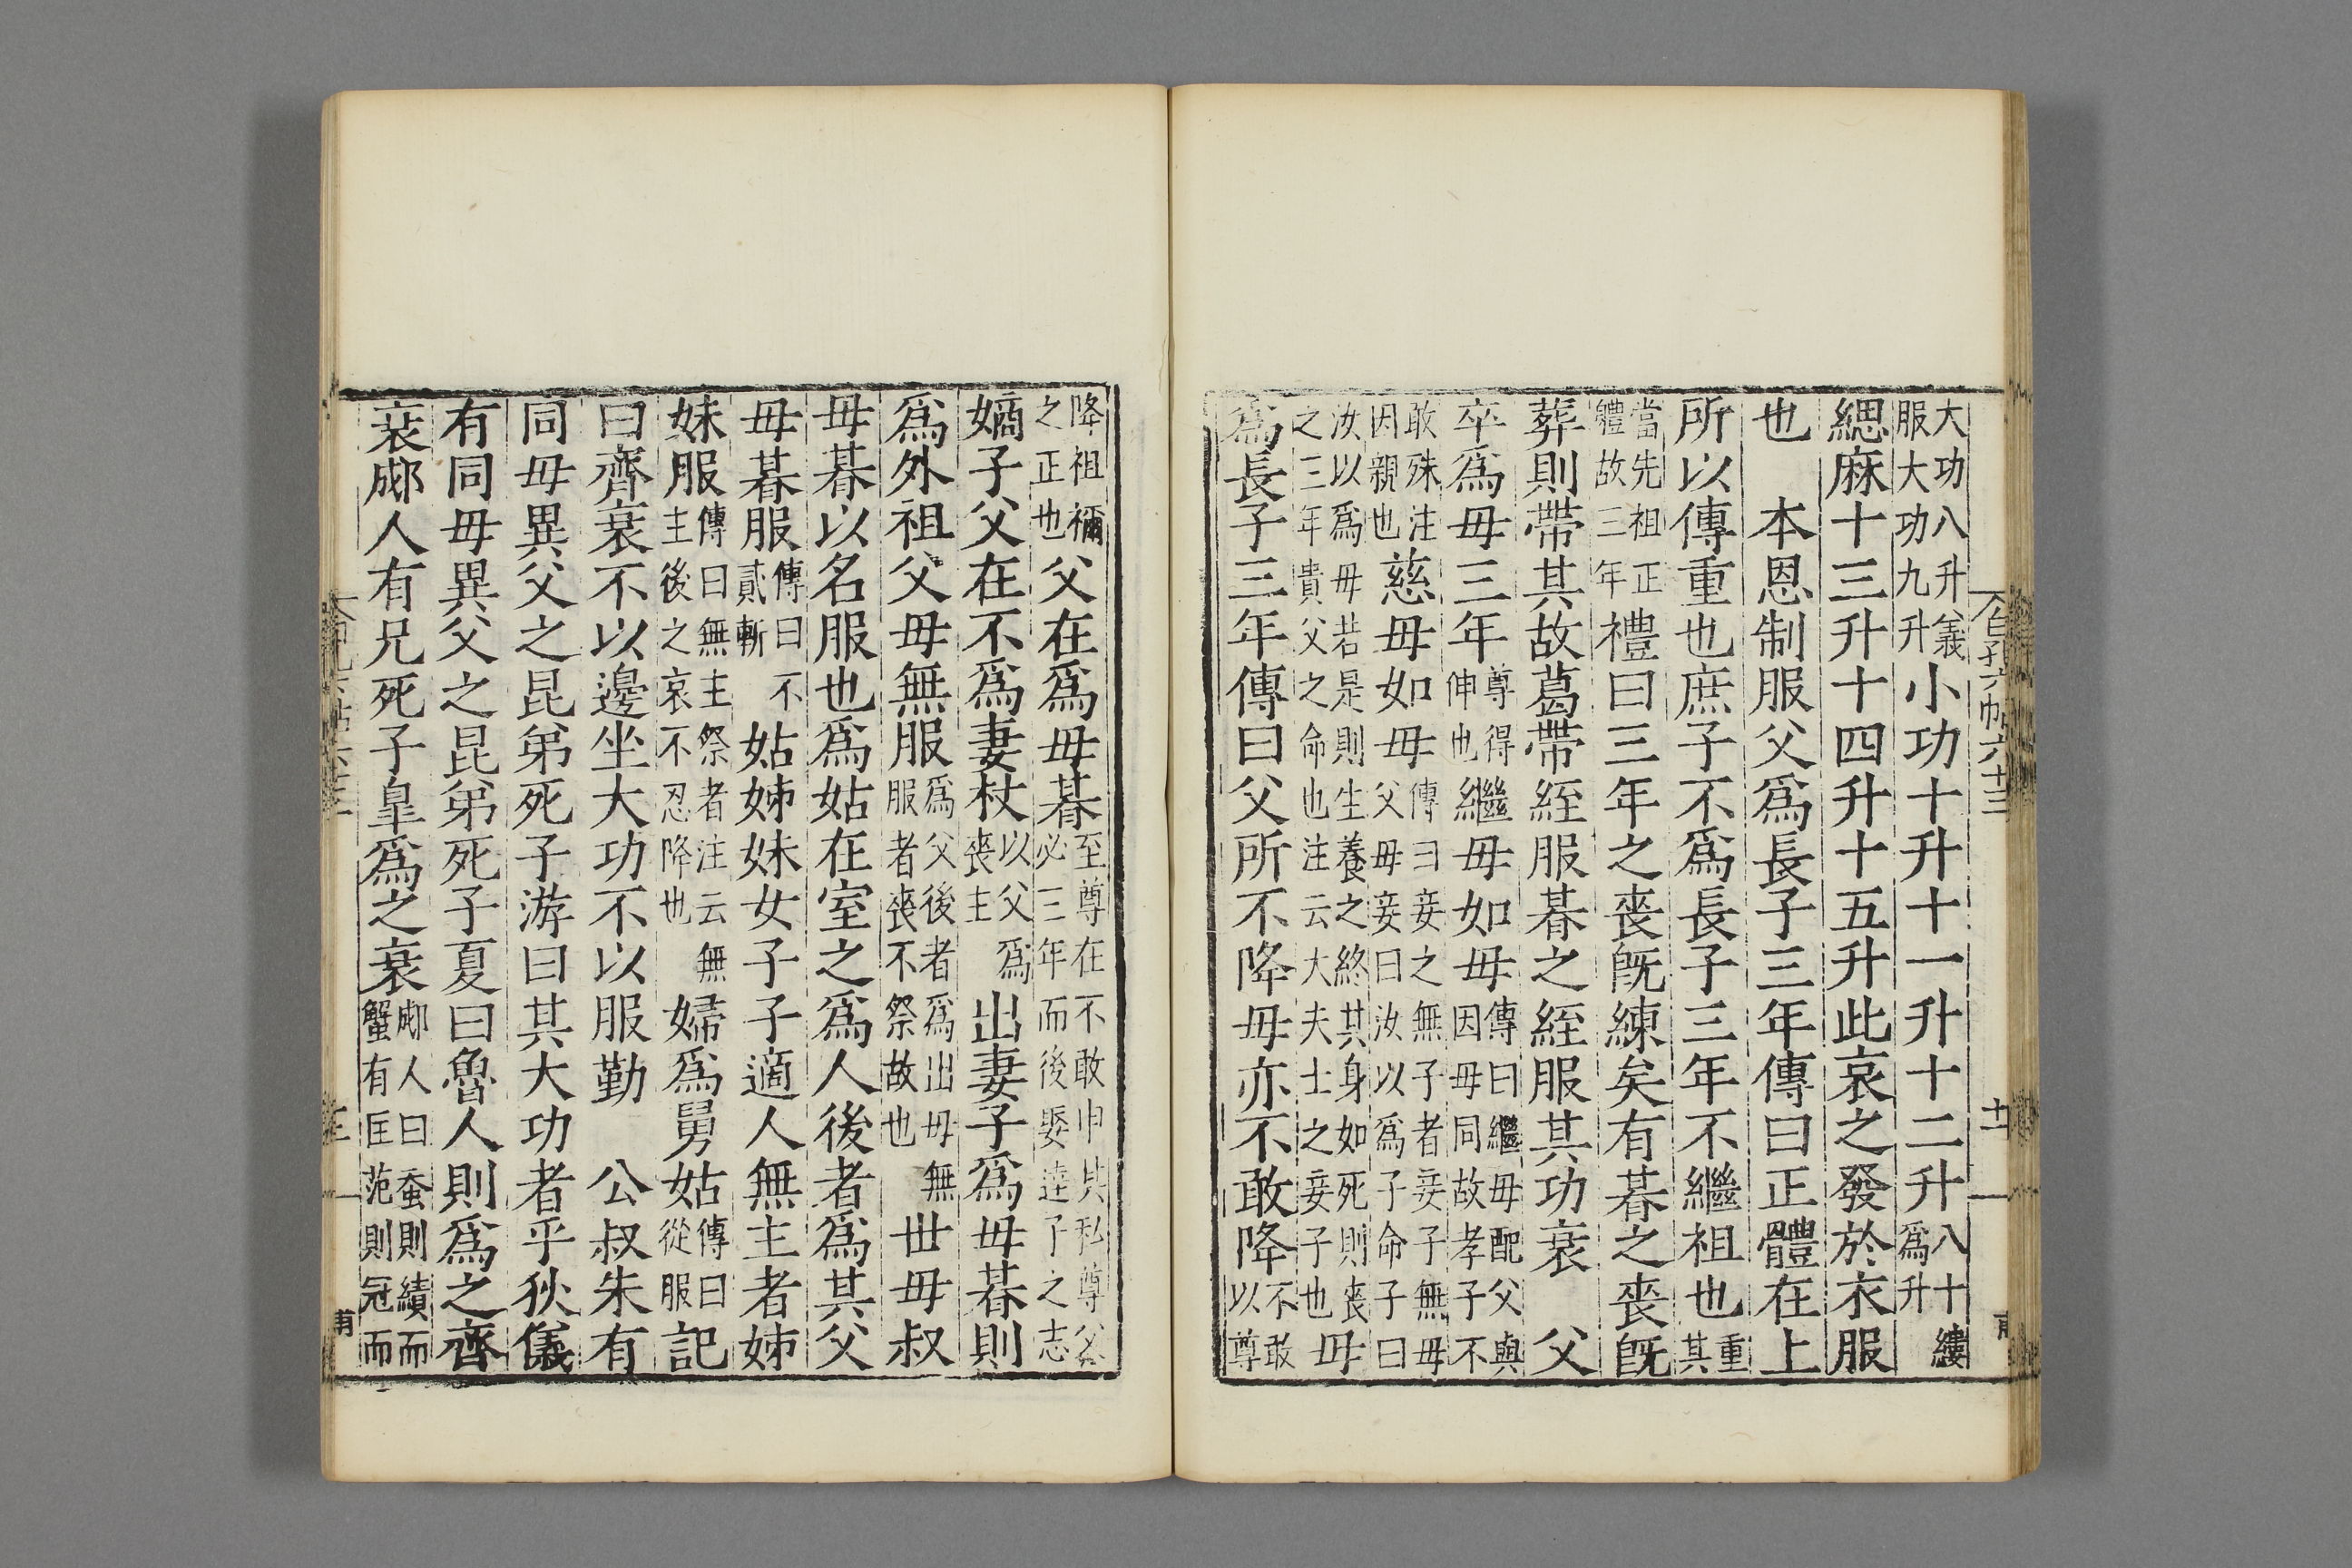 白孔六帖六十三 十一
大功八升義服大功九升小功十升十一升十二升八十縷爲升
緦麻十三升十四升十五升此哀之發於衣服
也 本恩制服父爲長子三年傳曰正體在上
所以傳重也庶子不爲長子三年不繼祖也重其
當先祖正體故三年禮曰三年之喪旣練矣有朞之喪旣
葬則帶其故葛帶絰服朞之絰服其功衰 父
卒爲母三年尊得伸也繼母如母傳曰繼母配父與因母同故孝子不
敢殊注因親也慈母如母傳曰妾之無子者妾子無母父母妾曰汝以爲子命子曰
汝以爲母若是則生養之終其身如死則喪之三年貴父之命也注云大夫士之妾子也母
爲長子三年傳曰父所不降母亦不敢降不敢以尊
降祖禰之正也父在爲母朞至尊在不敢申其私尊父必三年而後娶達子之志
嫡子父在不爲妻杖以父爲喪主出妻子爲母朞則
爲外祖父母無服爲父後者爲出母無服者喪不祭故也世母叔
母朞以名服也爲姑在室之爲人後者爲其父
母朞服傳曰不貳斬姑姊妹女子子適人無主者姊
妹服傳曰無主祭者注云無主後之哀不忍降也婦爲舅姑傳曰從服記
曰齊衰不以邊坐大功不以服勤 公叔朱有
同母異父之昆弟死子游曰其大功者乎狄儀
有同母異父之昆弟死子夏曰魯人則爲之齊
衰郕人有兄死子皐爲之衰郕人曰蚕則績而蟹有匡范則冠而
甫